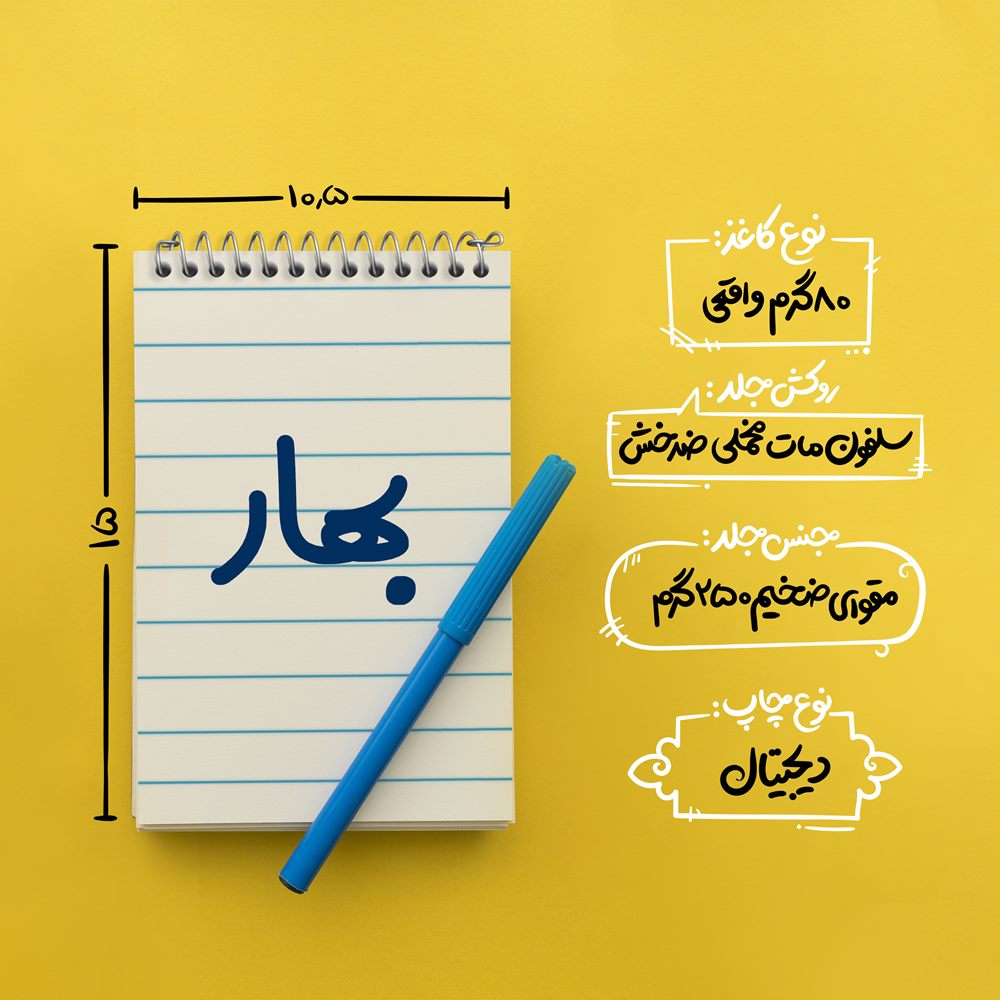 ۱۰٫۵
۱۵
بهار
نوع کاغذ:
۸۰ گرم واقعی
روکش جلد:
سلفون مات مخملی ضدخش
جنس جلد:
مقوای ضخیم ۲۵۰ گرم
نوع چاپ:
دیجیتال